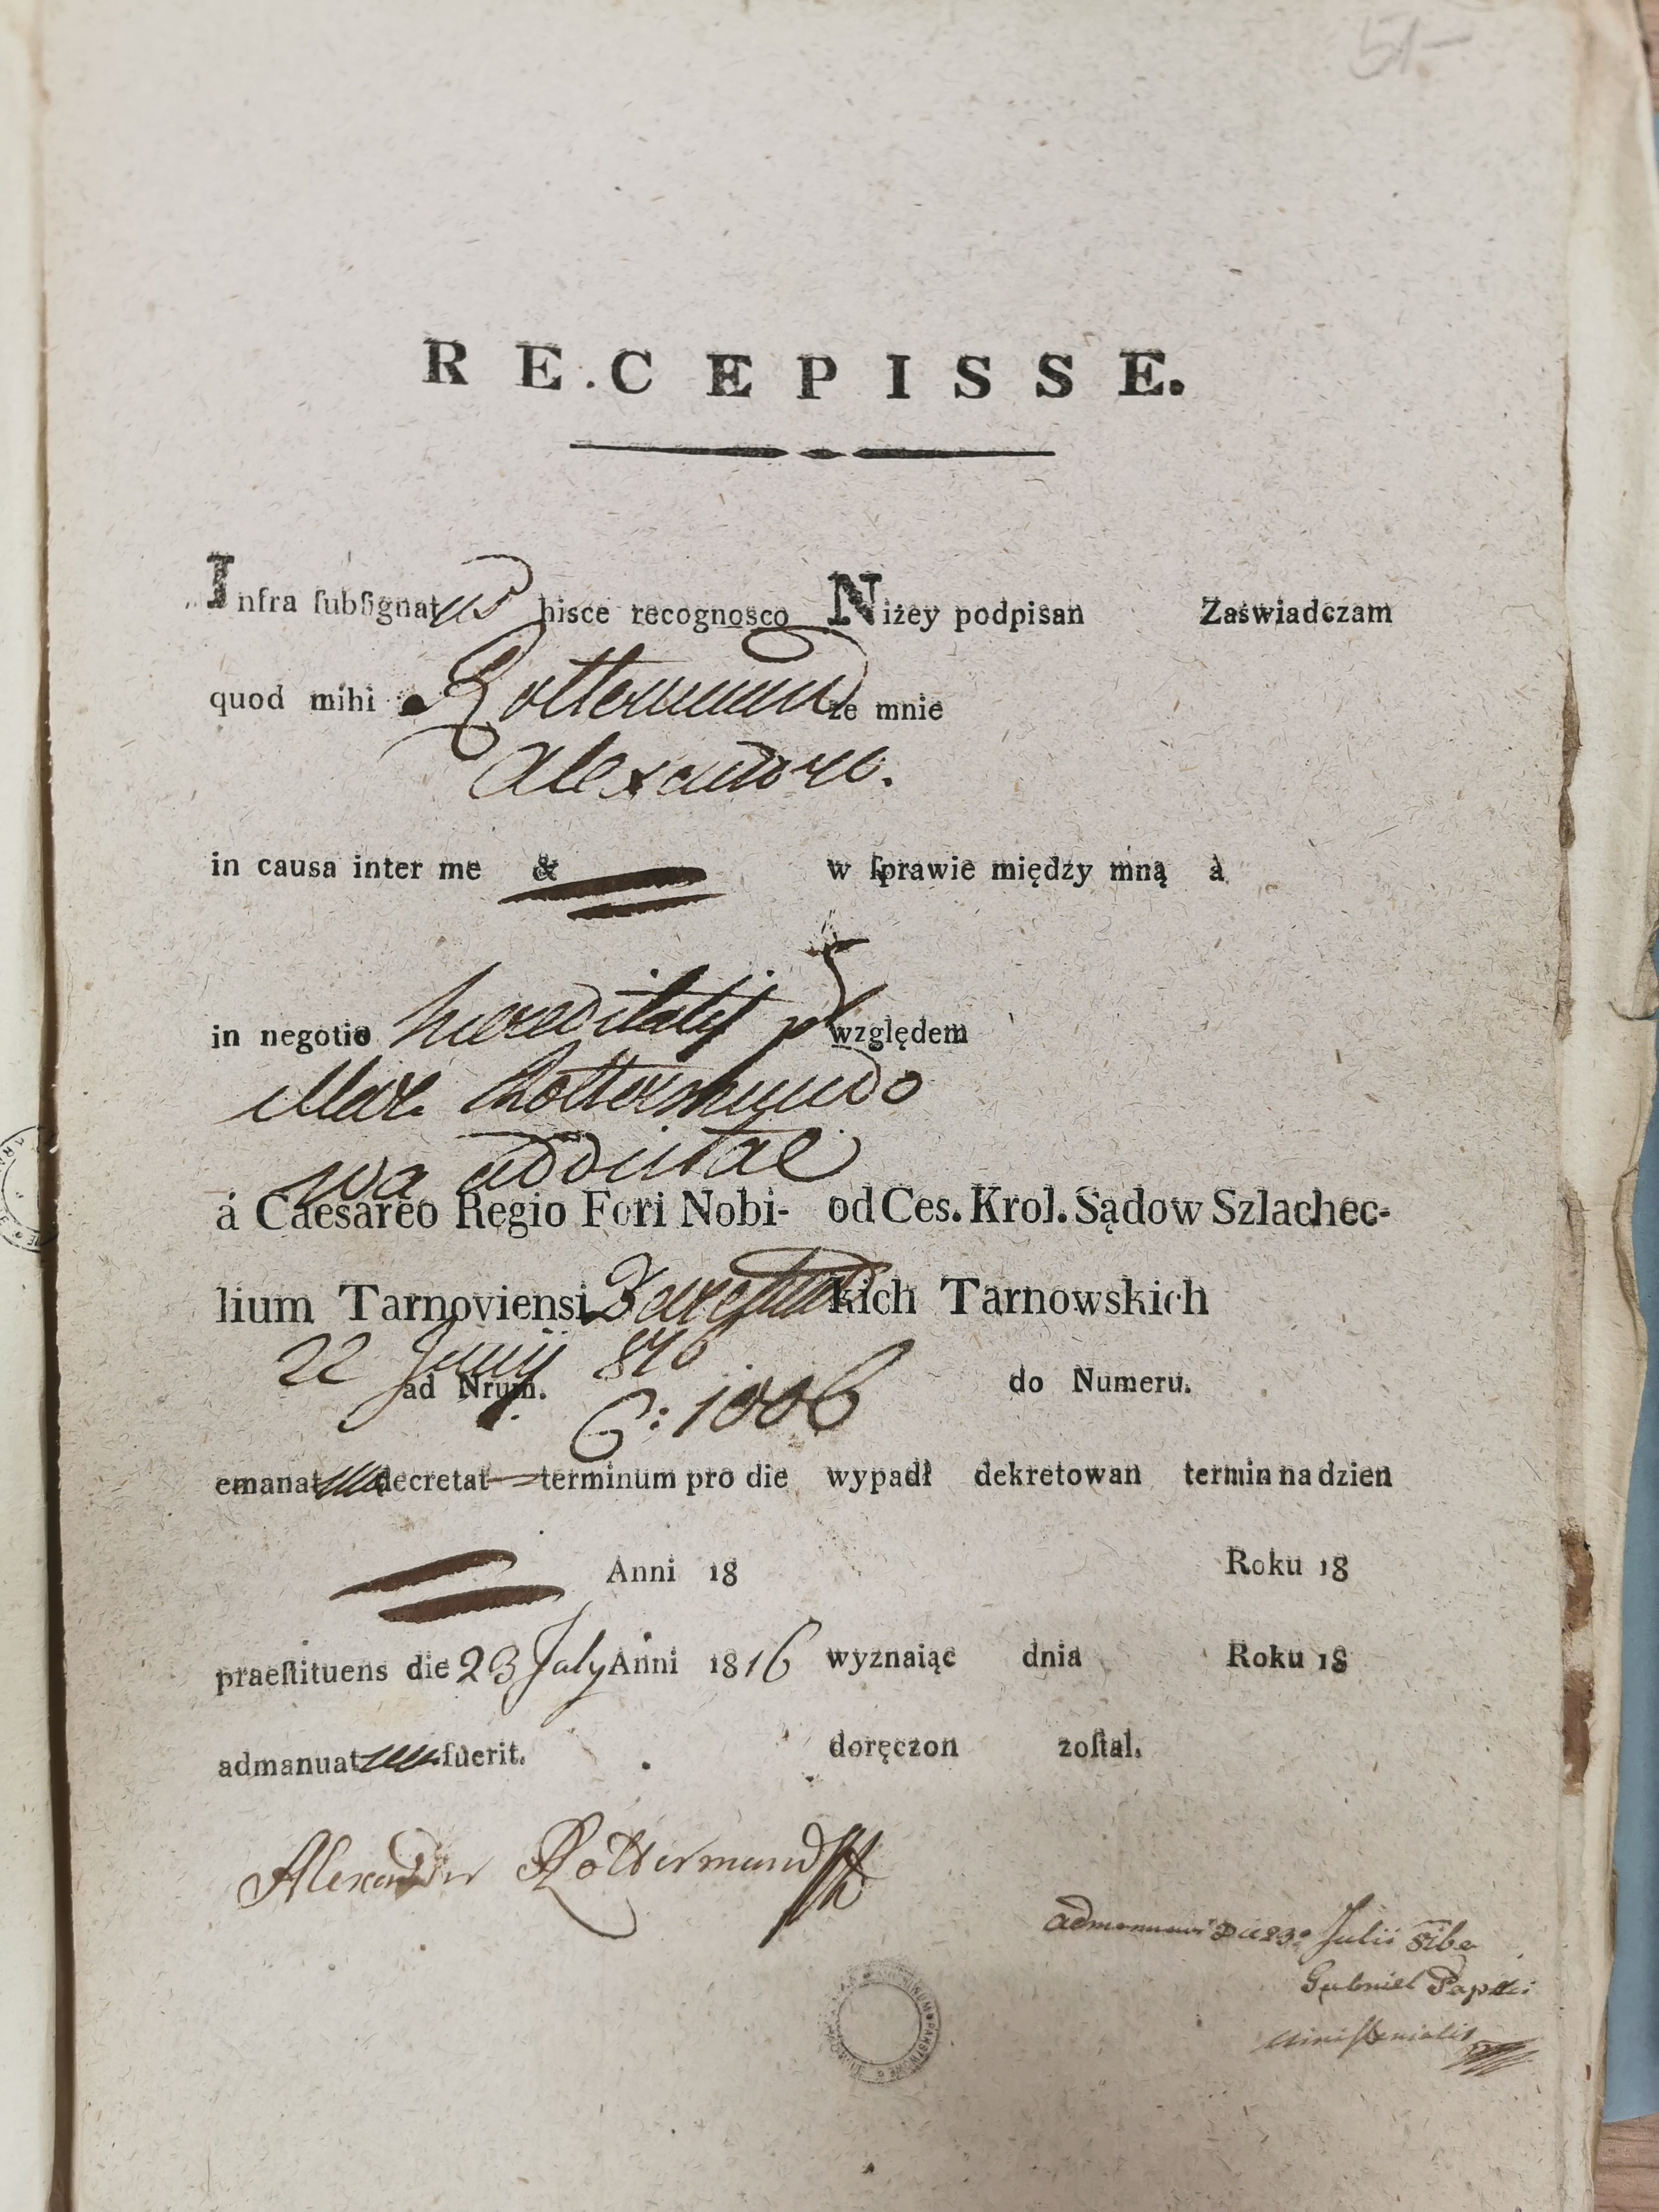 51-
RECEPISSE.
Infra ſubſignatus hisce recognosco Niżey podpisan Zaświadczam
quod mihi Rottermund że mnie
Alexandro.
in causa inter me & w ſprawie między mną à
in negotio haereditatis względem
Mar. Rottermundo
wa addictae
á Caesareo Regio Fori Nobi- od Ces. Krol. Sądow Szlachec-
lium Tarnoviensi kich Tarnowskich
22 Junij 816
ad Nrum. 6:1006 do Numeru.
emanatum decretat terminum pro die wypadł dekretowan termin na dzień
Anni 18 Roku 18
praeſtituens die 23 July Anni 1816 wyznaiąc dnia Roku 18
admanuatum fuerit. doręczon zoſtał.
Alexander Rottermund
admanuavi Die 23º Julii 816
Gabriel
ministerialis